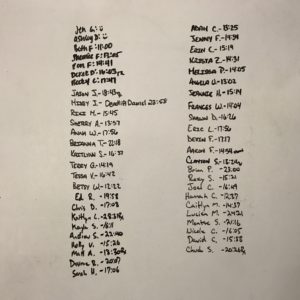 Jeh G. ☺
Ashley D. ☺
Beth F. 11:00
F. 17:05
Tom F. 19:41
Derek D. 16:03
Becky C. 17:37
Jason J. - 18:43
Mindy J. - Daniel 28:58
Rike M. - 15:45
Sherry A. - 13:57
Anna W. - 17:56
Brianna T. - 21:18
Kaitlyn S. - 16:37
Terry G. - 14:29
Tessa V. - 16:42
Betsy W. - 12:22
Ed R. - 19:58
Chris D. - 17:08
Kaitlyn L. - 28:31
Kayla S. - 16:11
Andrew S. - 22:40
Kelly V. - 15:26
Matt A. - 13:30
Dwayne B. - 20:07
Sarah H. - 17:06
Adrin C. - 15:25
Jenny F. - 14:34
Erin C. - 15:19
Krista Z. - 14:31
Melissa P. - 14:05
Angela V. - 13:03
Jeannie H. - 15:14
Frances W. - 14:04
Shawn D. - 16:26
Eric L. - 17:56
Devin F. - 17:17
Aaron F. - 14:54
Clayton S. - 18:26
Brian P. - 23:00
Roxy S. - 15:21
Joel C. - 16:49
Hannah C. - 12:37
Caitlyn M. - 14:37
Lucian M. - 24:21
S. - 21:16
Nicole C. - 16:05
David C. - 15:38
Chuck S. - 20:26